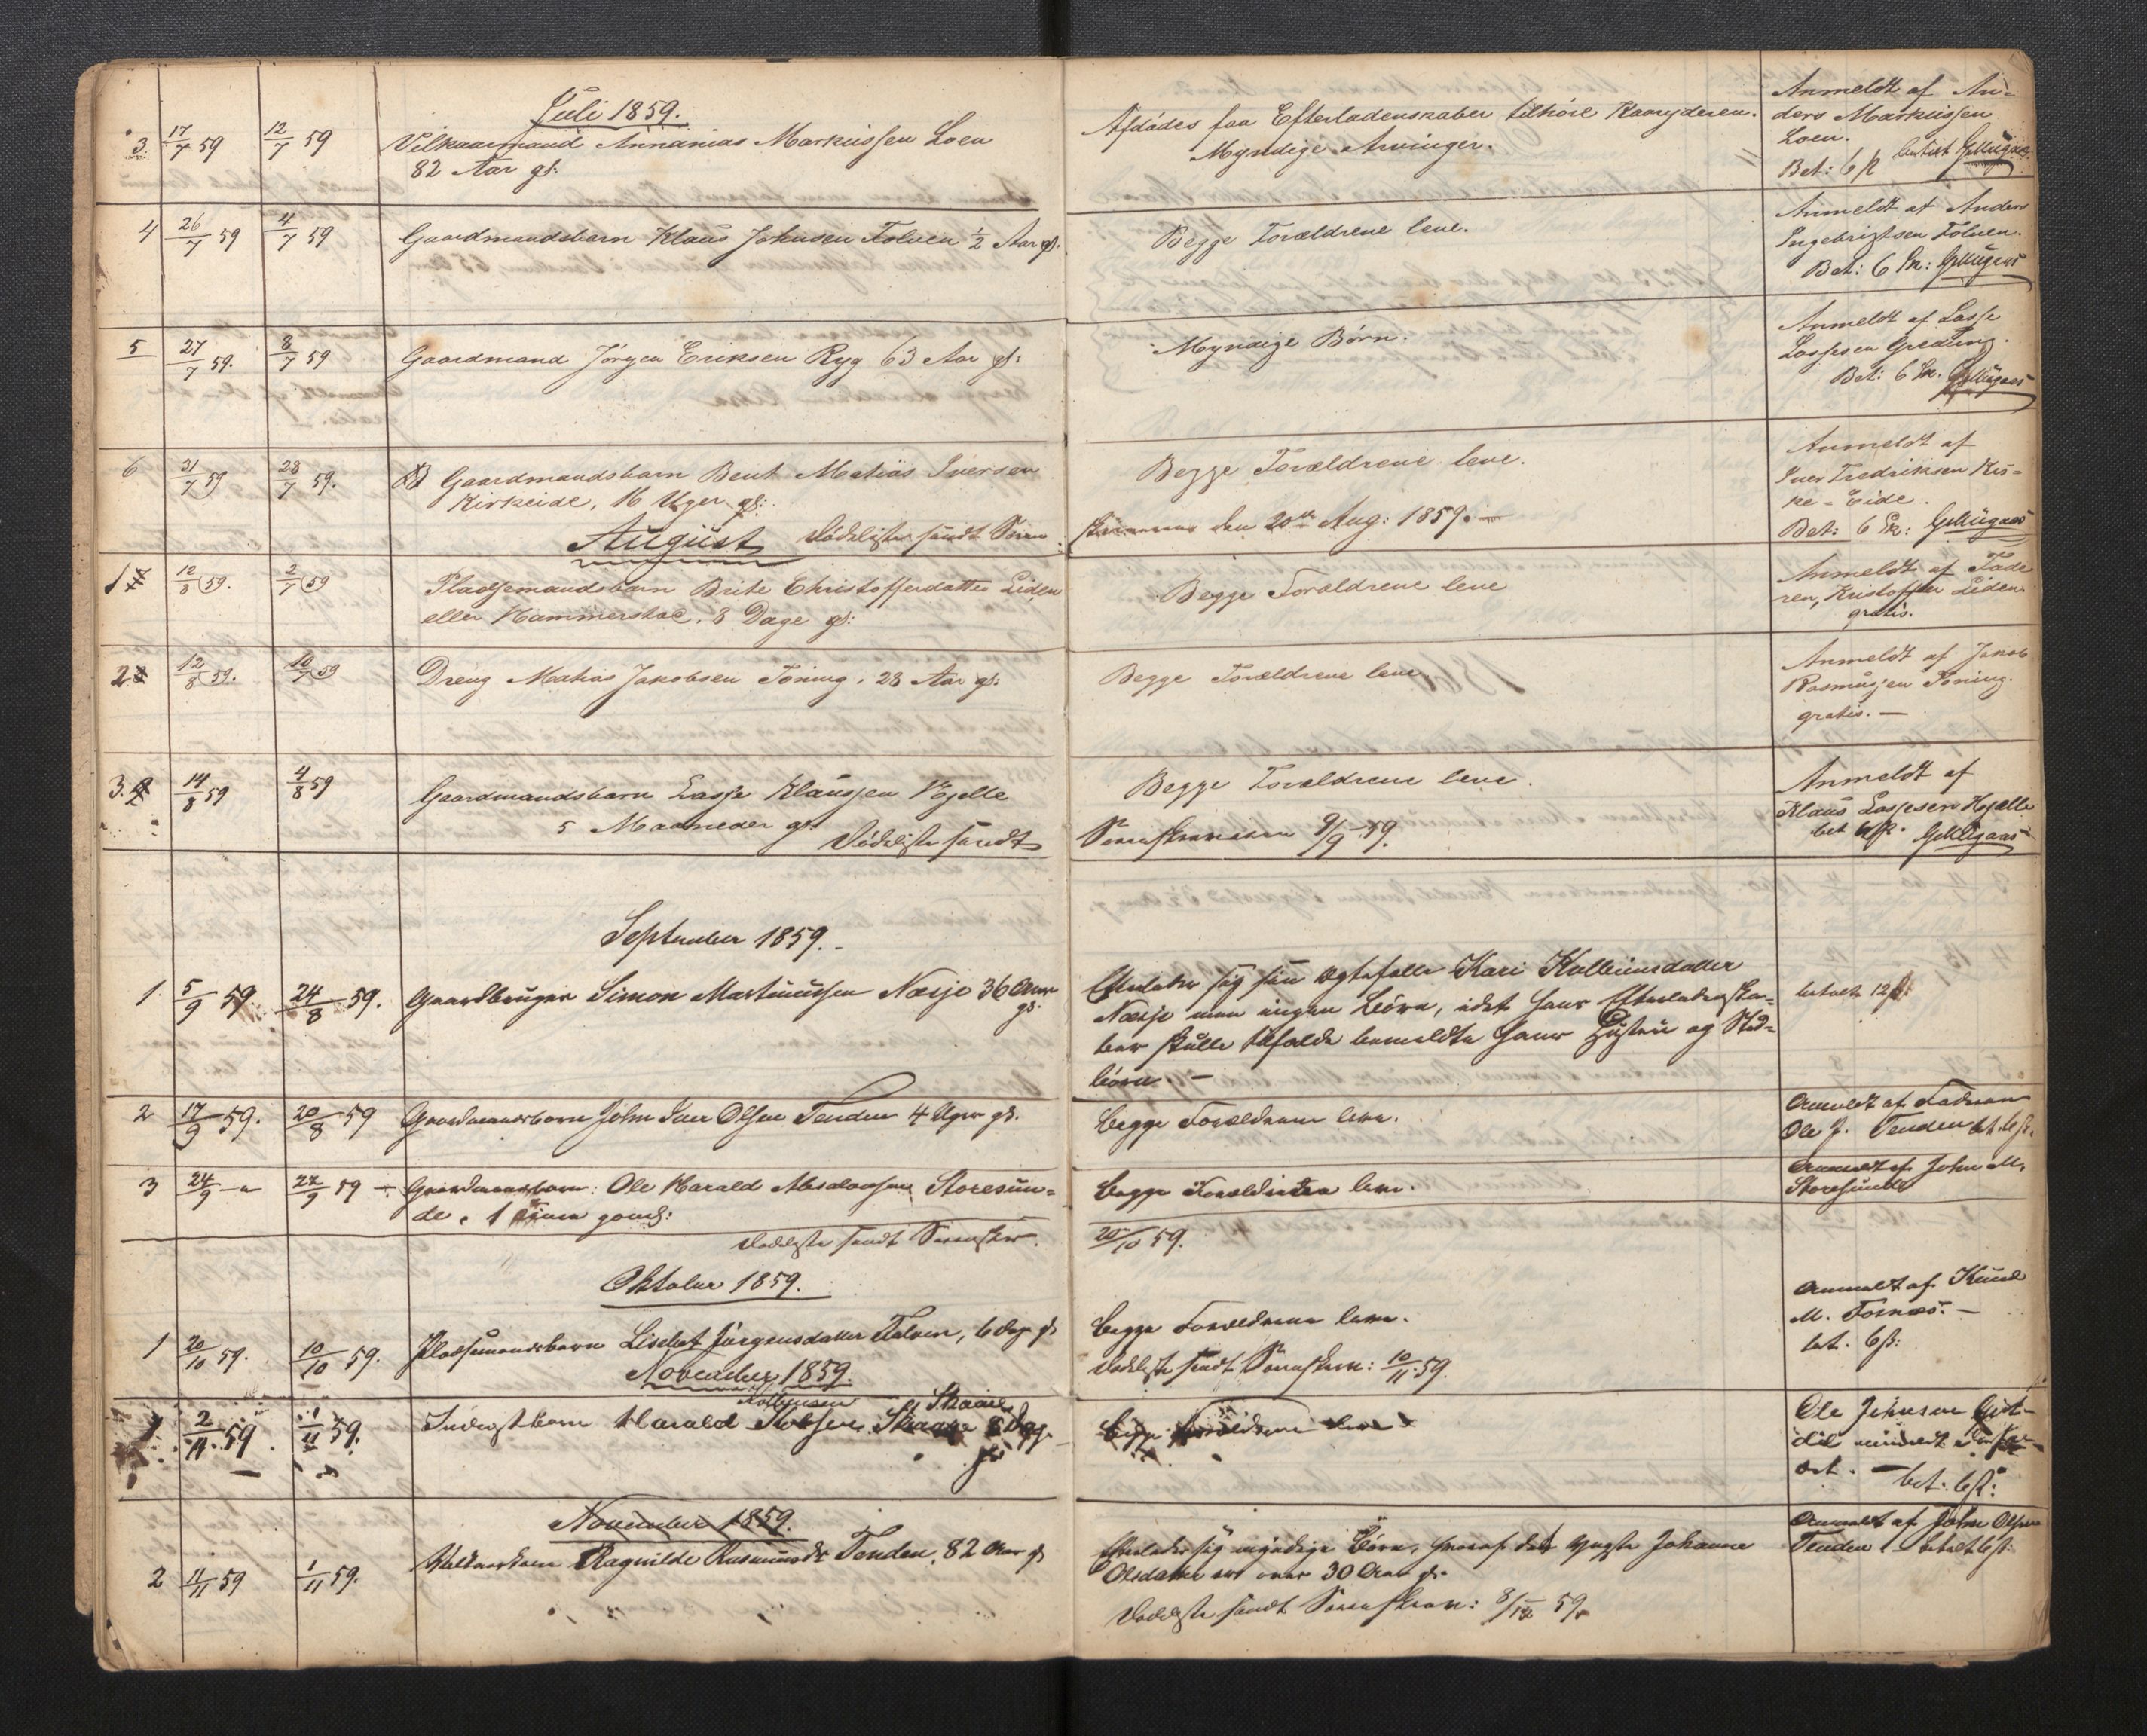 Juli 1859.
3. 17/7 59 12/7 59 Vilkaarmand Annanias Markussen Loen
82 Aar gl:
Afdødes faa Efterladenskaber tilhøre
Myndige Arvinger.
Anmeldt af An-
ders Markussen
Loen.
Bet: 6 ß
4 26/7 59 4/7 59 Gaardmandsbarn Klaus Johnsen Folven ½ Aar gl.
Begge Forældrene leve.
Anmeldt af Anders
Ingebrigtsen Folven.
Bet: 6 Sk:
5 27/7 59. 8/7 59 Gaardmand Jörgen Eriksen Ryg 63 Aar gl:
Myndige Børn.
Anmeldt af Lasse
Lassesen
Bet: 6 Sk.
6 21/7 59 23/7 59. Gaardmandsbarn Bent Mathias Iversen
Kirkeide, 16 Uger gl:
Begge Forældrene leve.
Anmeldt af
Iver Fredriksen Kir-
ke-Eide.
Bet: 6 Sk:
August Dödsliste sendt
den 20de Aug: 1859. —
1 12/8 59. 2/7 59 Pladsemandsbarn Brite Christofferdatter Liden
eller 3 Dage gl:
Begge Forældrene leve
Anmeldt af Fade
ren, Kristoffer Liden
gratis.
2 12/8 59. 10/7 59 Dreng Mathias Jakobsen Töning, 23 Aar gl:
Begge Forældrene leve
Anmeldt af Jakob
Rasmusen Töning.
gratis. —
3. 14/8 59 4/8 59 Gaardmandsbarn Lasse Klausen
5 Maaneder gl:
Dödsliste sendt
Begge Forældrene leve.
9/9 59.
Anmeldt af
Klaus Lassesen Hjelle
bet 6 ß.
September 1859. -
1 5/9 59. 24/8 59. Gaardbruger Simon Martinussen Nesje 36 Aar
gl.
Efterlader sig sin Ægtefælle Kari
Nesje men ingen Börn, idet hans Efterladenska-
ber skulle tilfalde bemeldte hans Hustru og Sted-
börn. —
betalt 12 ß:
2 17/9 59. 20/8 59 Gaardmandsbarn John Olsen Tenden 4 Uger gl.
Begge Forældrene leve.
Anmeldt af Faderen
Ole J. Tenden bet. 6 ß.
3 24/9 22/9 59 Gaardmandsbarn: Ole Harald Storesun-
de. 1
Dödsliste sendt Sorenskr.
Begge Forældrene leve.
20/10 59.
Anmeldt af John M.
Storesunde
Oktober 1859.
1 20/10 59. 10/10 59. Pladsemandsbarn Lisebet Jörgensdatter Folven, 6 Dage gl
Begge Forældrene leve.
Dödsliste sendt Sorenskr: 10/11 59.
Anmeldt af Knud
M. Fosnæs. —
bet. 6 ß:
November 1859.
1 2/11 59. 1/11 59. Inderstbarn Harald Skaare 8 Dage
gl
Begge Forældrene leve
Ole Johnsen
bet. 6 ß:
November 1859.
2 11/11 59 1/11 59. Ragnilde Rasmusdr Tenden, 82 Aar gl
Efterlader sig myndige Börn, hvoraf det yngste Johanne
Olsdatter er over 30 Aar gl.
Dödsliste sendt Sorenskriv: 8/12 59.
Anmeldt af John Olsen
Tenden betalt 6 ß: